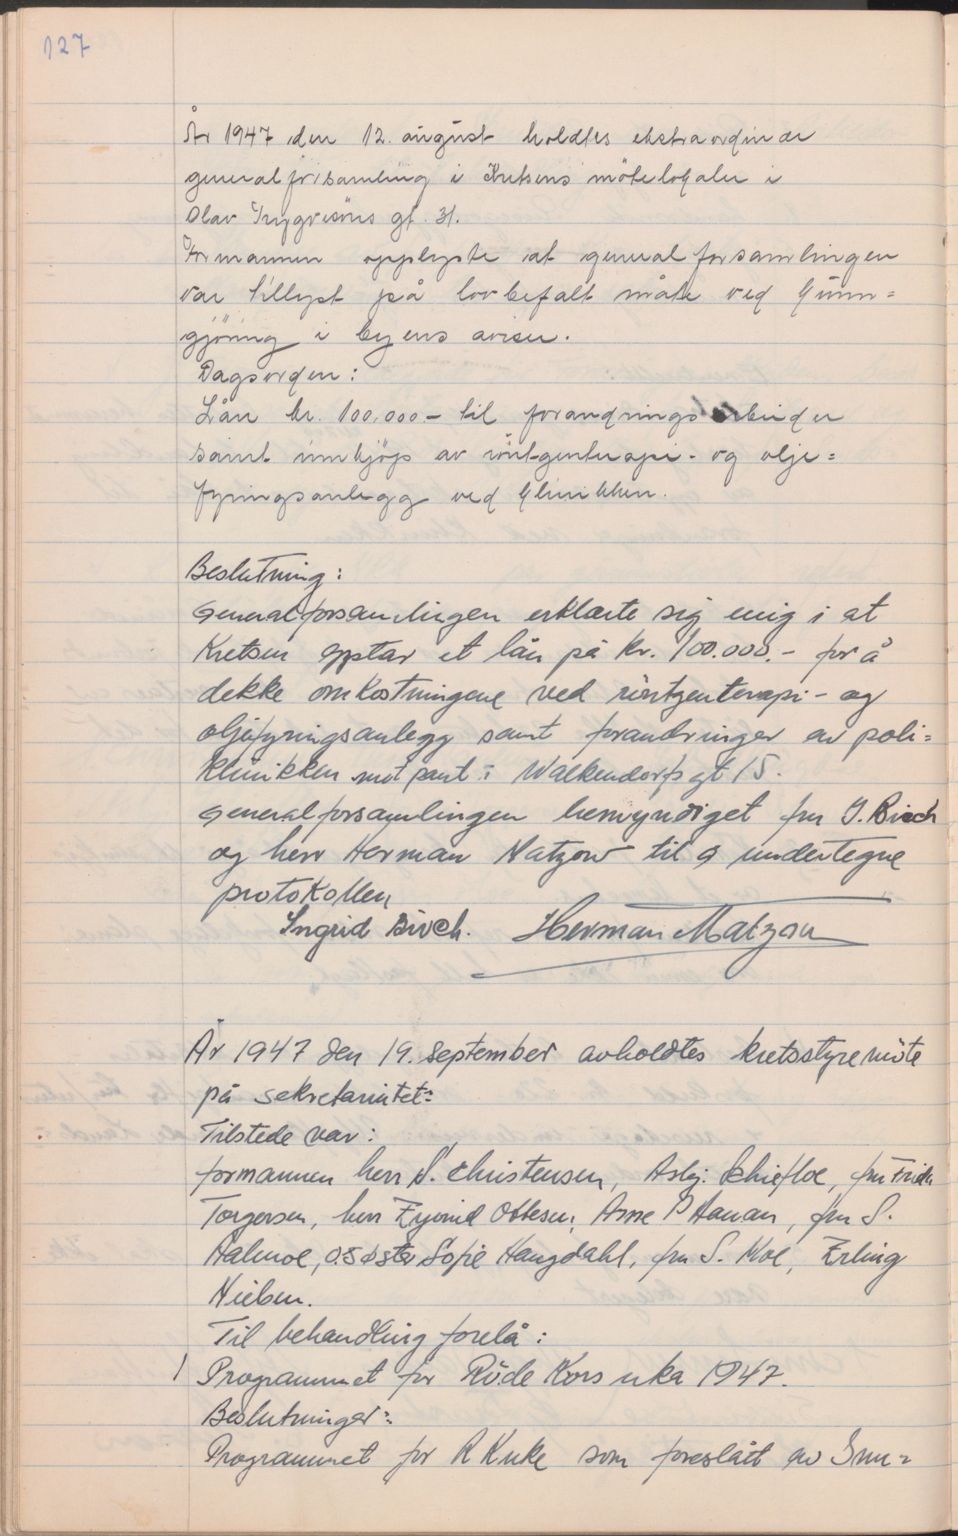 127
År 1947 den 12. august holdtes ekstraordinær
generalforsamling i Kretsens møtelokaler i
Olav Trygvesøns gt. 31.
Formannen opplyste at generalforsamlingen
var tillyst på lovbefalt måte ved kunn=
gjøring i byens aviser.
Dagsorden:
Lån kr. 100.000 – til forandringsarbeider
samt innkjøp av røntgenterapi- og olje=
fyringsanlegg ved klinikken.
Beslutning:
Generalforsamlingen erklærte sig enig i at
Kretsen opptar et lån på kr. 100.000.- for å
dekke omkostningene ved røntgenterapi- og
oljefyringsanlegg samt forandringer av poli=
klinikken mot pant i Walkendorfs gt 15.
Generalforsamlingen bemyndiget fru I. Birch
og herr Herman Matzow til å undertegne
protokollen
Ingrid Birch. Herman Matzow
År 1947 den 19. September avholdtes kretsstyremøte
på sekretariatet:
Tilstede var:
formannen herr S. Christensen, Asbj. Schiefloe, fru Frida
Torgersen, herr Eyvind Ottesen, Arne P Hanan, fru S.
Halmoe, o.søster Sofie Haugdahl, fru S. Moe, Erling
Nielsen.
Til behandling forelå:
1 Programmet for Røde Kors uka 1947.
Beslutninger:
Programmet for R K uke som foreslått av